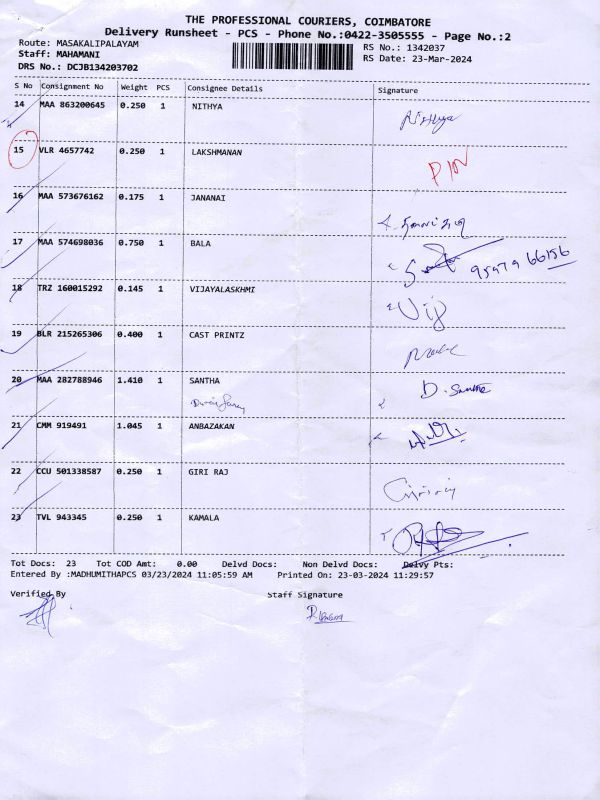 THE PROFESSIONAL COURIERS, COIMBATORE
Delivery Runsheet - PCS - Phone No.:0422-3505555 - Page No.:2
Route: MASAKALIPALAYAM RS No.: 1342037
Staff: MAHAMANI RS Date: 23-Mar-2024
DRS No.: DCJB134203702
S No Consignment No Weight PCS Consignee Details Signature
14 MAA 863200645 0.250 1 NITHYA Nithya
15 VLR 4657742 0.250 1 LAKSHMANAN
16 MAA 573676162 0.175 1 JANANAI
17 MAA 574698036 0.750 1 BALA
18 TRZ 160015292 0.145 1 VIJAYALASKHMI Vij
19 BLR 215265306 0.400 1 CAST PRINTZ
20 MAA 282788946 1.410 1 SANTHA D. Santha
21 CMM 919491 1.045 1 ANBAZAKAN
22 CCU 501338587 0.250 1 GIRI RAJ
23 TVL 943345 0.250 1 KAMALA
Tot Docs: 23 Tot COD Amt: 0.00 Delvd Docs: Non Delvd Docs: Delvy Pts:
Entered By :MADHUMITHAPCS 03/23/2024 11:05:59 AM Printed On: 23-03-2024 11:29:57
Verified By Staff Signature